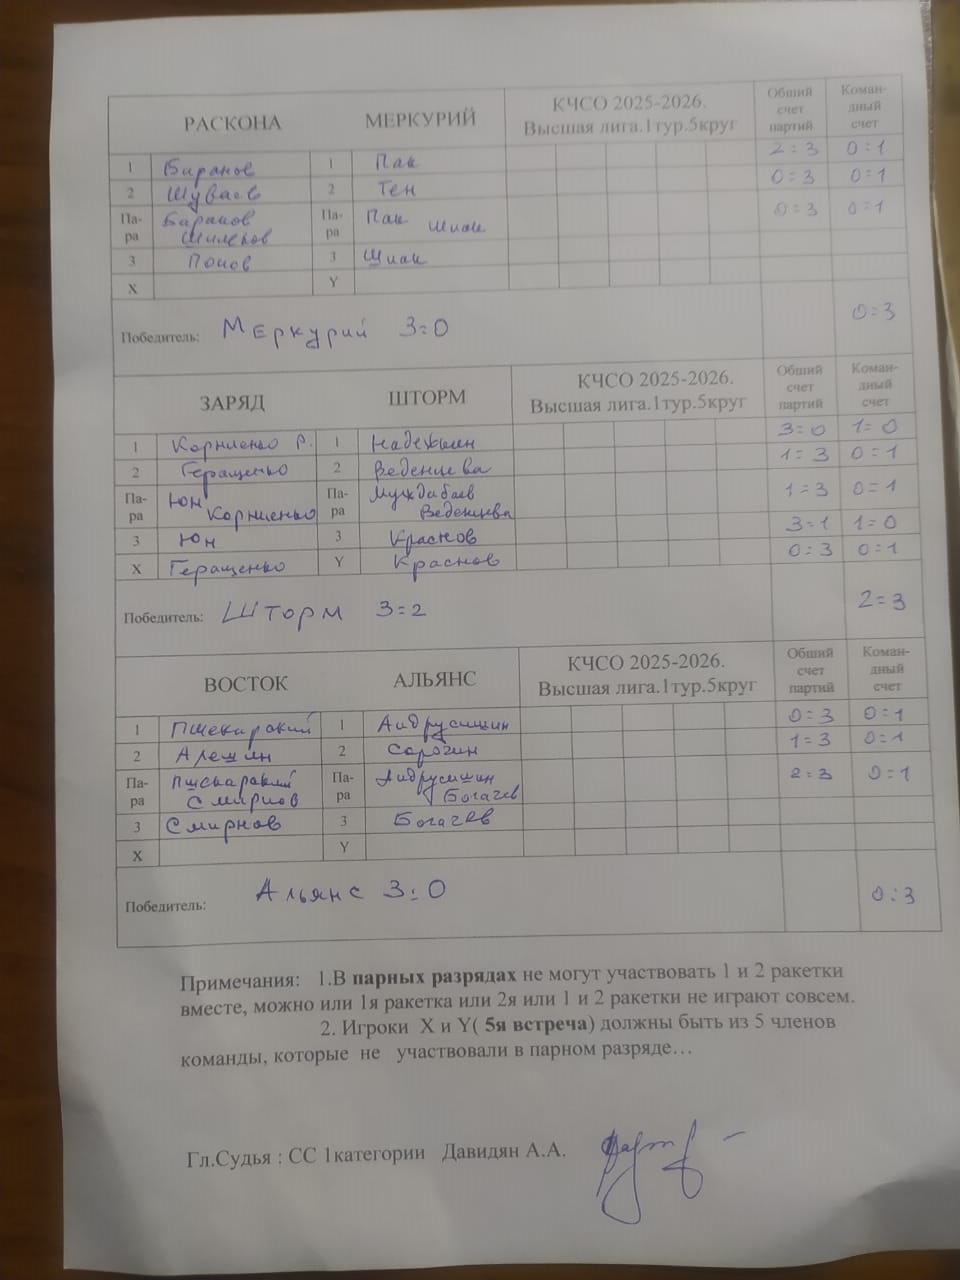 РАСКОНА МЕРКУРИЙ КЧСО 2025-2026. Высшая лига.1тур.5круг Общий счет партий Коман-дный счет
1 Баранов 1 Пак 2:3 0:1
2 Шуваев 2 Тен 0:3 0:1
Па-ра Баранов Шилеков Па-ра Пак Шиак 0:3 0:1
3 Попов 3 Шиак
X Y
Победитель: Меркурий 3:0 0:3
ЗАРЯД ШТОРМ КЧСО 2025-2026. Высшая лига.1тур.5круг Общий счет партий Коман-дный счет
1 Корниенко Р. 1 Надежкин 3:0 1:0
2 Геращенко 2 Веденцева 1:3 0:1
Па-ра Юн Корниенко Па-ра Муждабаев Веденцева 1:3 0:1
3 Юн 3 Краснов 3:1 1:0
X Геращенко Y Краснов 0:3 0:1
Победитель: Шторм 3:2 2:3
ВОСТОК АЛЬЯНС КЧСО 2025-2026. Высшая лига.1тур.5круг Общий счет партий Коман-дный счет
1 Пшекарский 1 Андрусишин 0:3 0:1
2 Алешин 2 Сорочин 1:3 0:1
Па-ра Смирнов Па-ра Андрусишин Богачев 2:3 0:1
3 Смирнов 3 Богачев
X Y
Победитель: Альянс 3:0 0:3
Примечания: 1.В парных разрядах не могут участвовать 1 и 2 ракетки
вместе, можно или 1я ракетка или 2я или 1 и 2 ракетки не играют совсем.
2. Игроки X и Y( 5я встреча) должны быть из 5 членов
команды, которые не участвовали в парном разряде…
Гл.Судья : СС 1категории Давидян А.А.